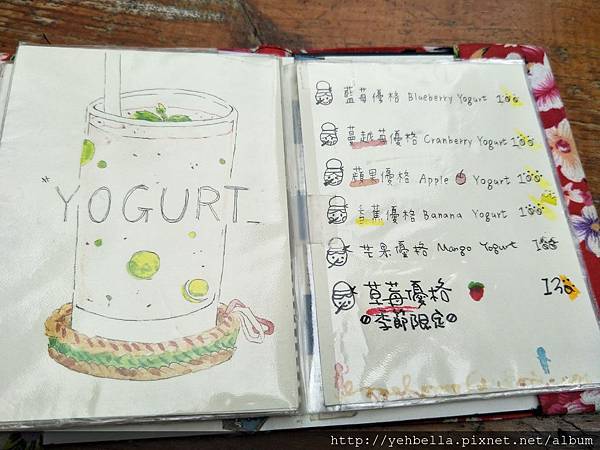 "YOGURT_
藍莓優格 Blueberry Yogurt 100
蔓越莓優格 Cranberry Yogurt 100
蘋果優格 Apple Yogurt 100
香蕉優格 Banana Yogurt 100
芒果優格 Mango Yogurt 100
草莓優格 120
季節限定
http://yehbella.pixnet.net/album